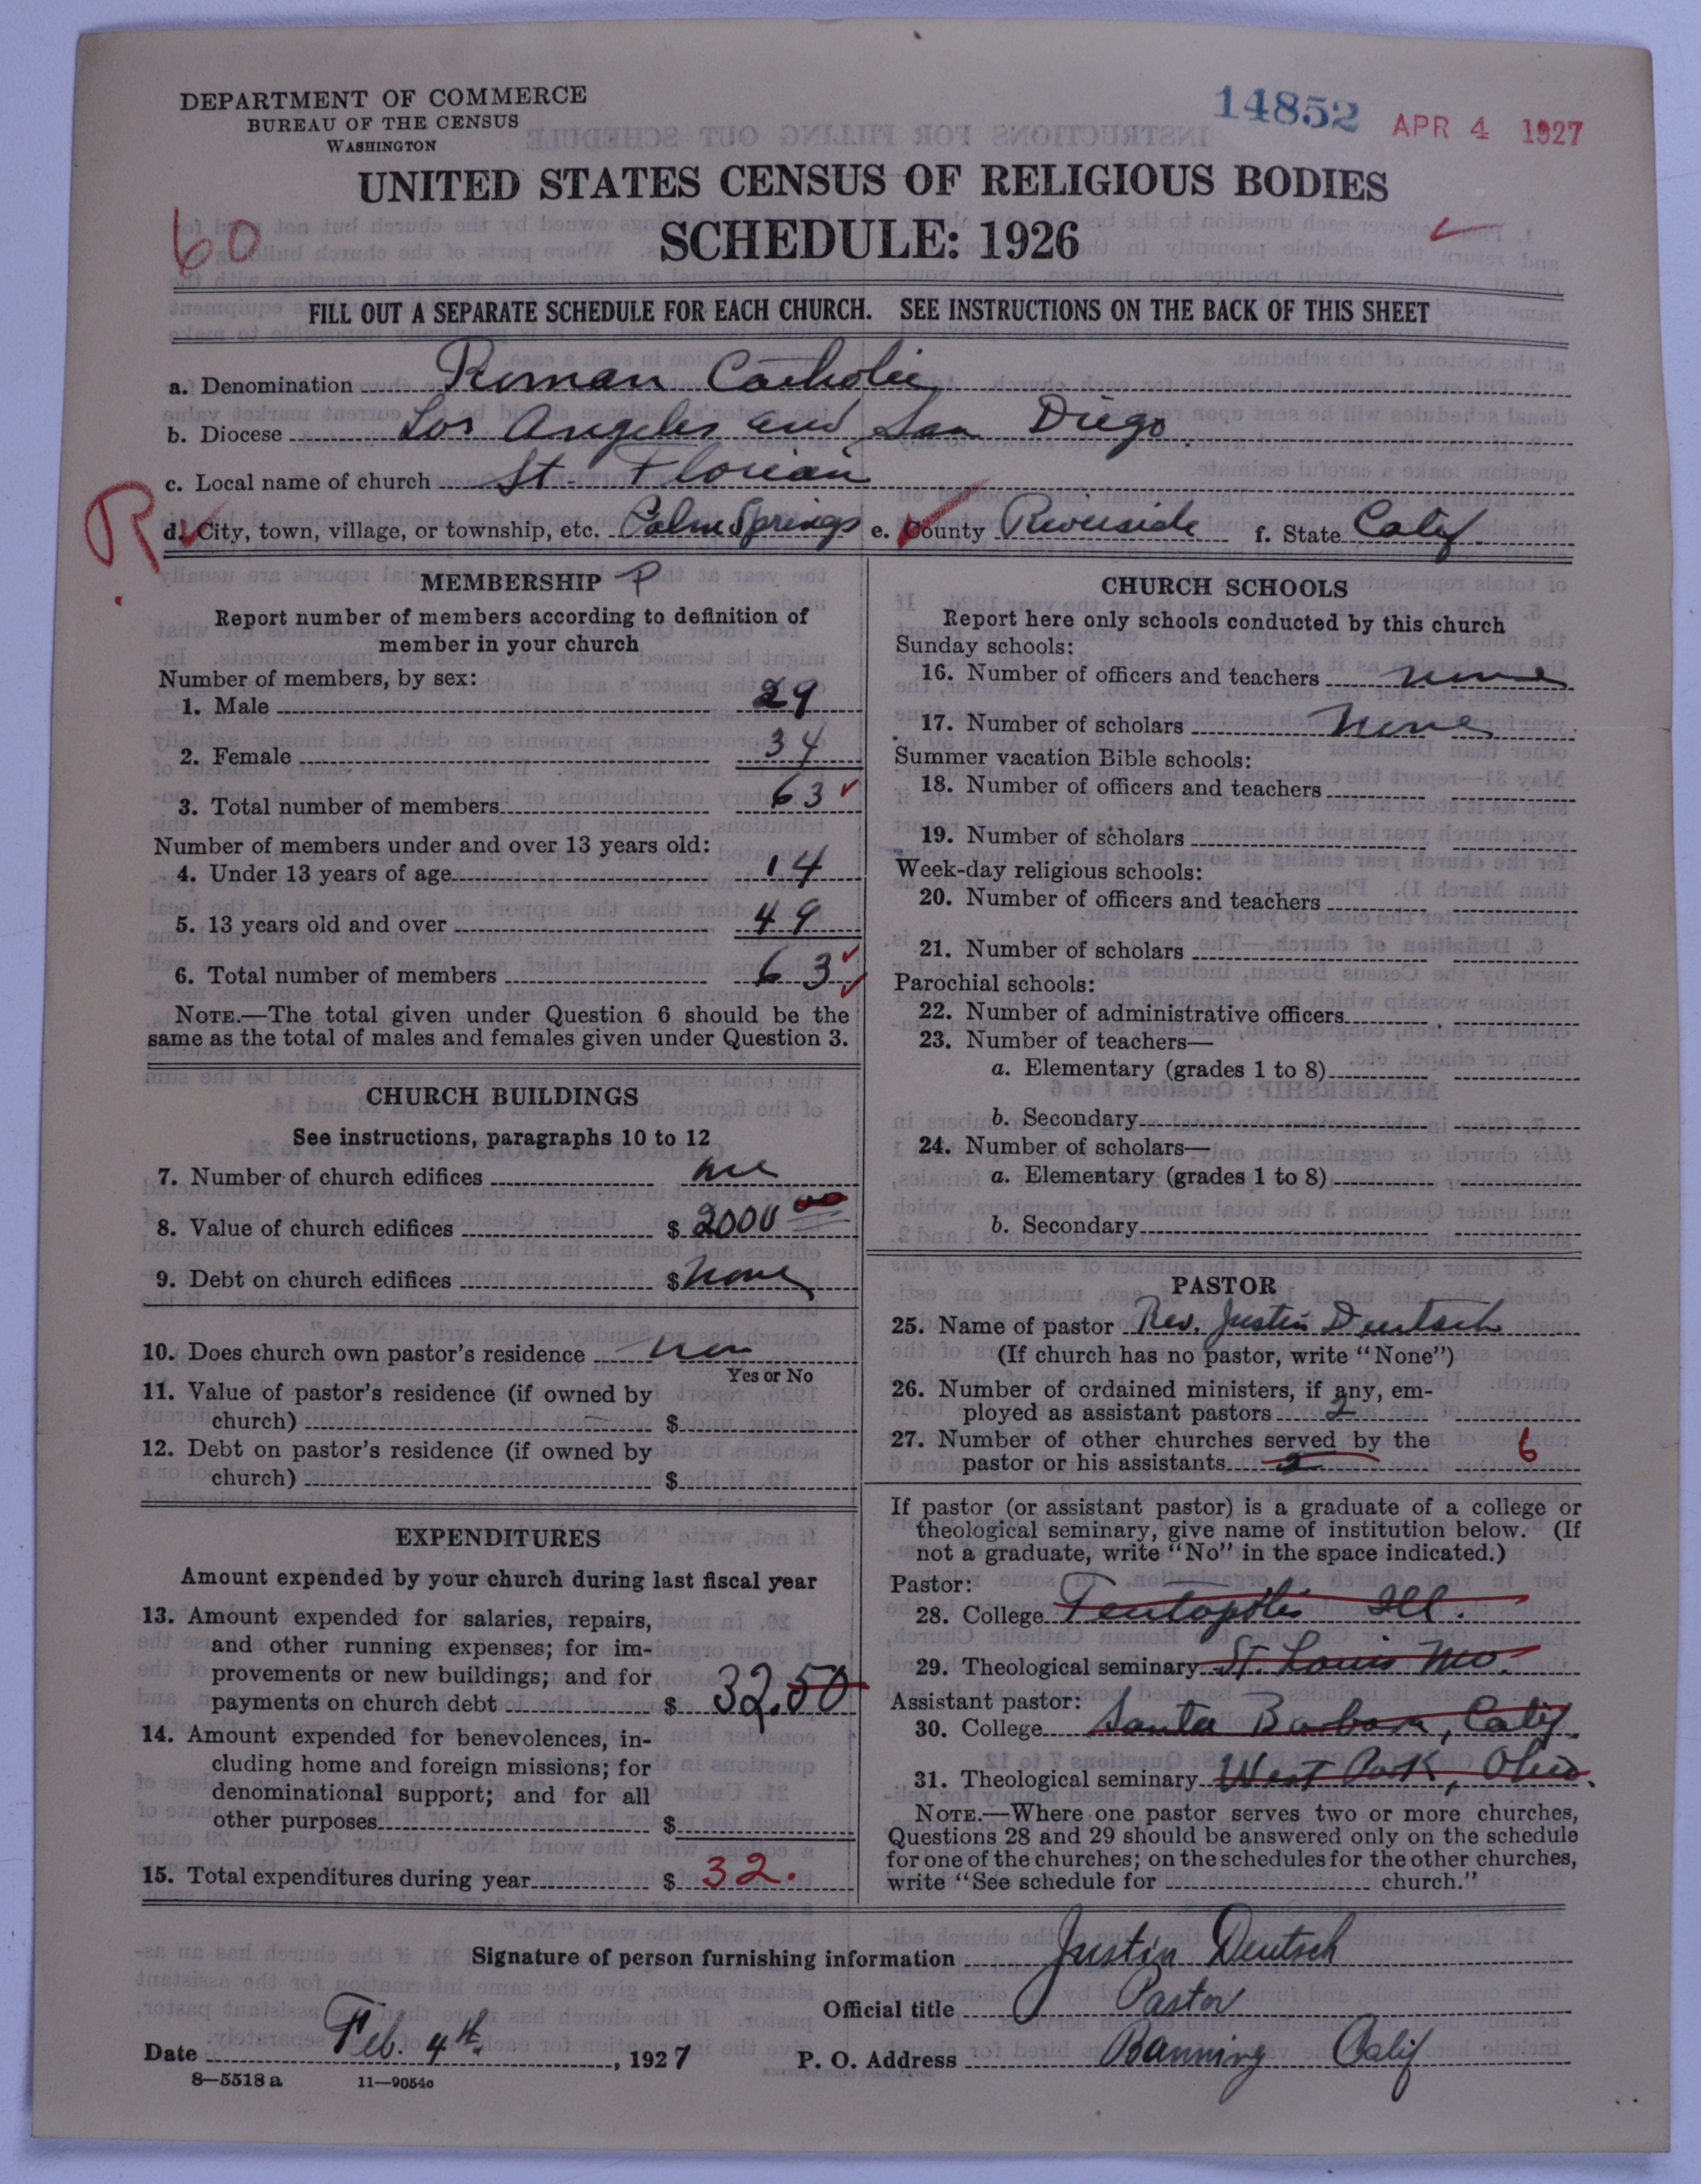 DEPARTMENT OF COMMERCE
BUREAU OF THE CENSUS
WASHINGTON
14852 APR 4 1927
UNITED STATES CENSUS OF RELIGIOUS BODIES
SCHEDULE: 1926
60
FILL OUT A SEPARATE SCHEDULE FOR EACH CHURCH. SEE INSTRUCTIONS ON THE BACK OF THIS SHEET
a. Denomination Roman Catholic
b. Diocese Los Angeles and San Diego.
c. Local name of church St Florian
R
d. City, town, village, or township, etc. Palm Springs e. County Riverside f. State Calif
MEMBERSHIP P
Report number of members according to definition of
member in your church
Number of members, by sex:
1. Male 29
2. Female 34
3. Total number of members 63
Number of members under and over 13 years old:
4. Under 13 years of age 14
5. 13 years old and over 49
6. Total number of members 63
NOTE.—The total given under Question 6 should be the
same as the total of males and females given under Question 3.
CHURCH BUILDINGS
See instructions, paragraphs 10 to 12
7. Number of church edifices one
8. Value of church edifices $ 2000 00
9. Debt on church edifices $ none
10. Does church own pastor's residence
Yes or No
11. Value of pastor's residence (if owned by
church) $
12. Debt on pastor's residence (if owned by
church) $
EXPENDITURES
Amount expended by your church during last fiscal year
13. Amount expended for salaries, repairs,
and other running expenses; for im-
provements or new buildings; and for
payments on church debt $ 32.50
14. Amount expended for benevolences, in-
cluding home and foreign missions; for
denominational support; and for all
other purposes $
15. Total expenditures during year $ 32.
CHURCH SCHOOLS
Report here only schools conducted by this church
Sunday schools:
16. Number of officers and teachers none
17. Number of scholars none
Summer vacation Bible schools:
18. Number of officers and teachers
19. Number of scholars
Week-day religious schools:
20. Number of officers and teachers
21. Number of scholars
Parochial schools:
22. Number of administrative officers
23. Number of teachers—
a. Elementary (grades 1 to 8)
b. Secondary
24. Number of scholars—
a. Elementary (grades 1 to 8)
b. Secondary
PASTOR
25. Name of pastor Rev. Justin Deutsch
(If church has no pastor, write "None")
26. Number of ordained ministers, if any, em-
ployed as assistant pastors 2
27. Number of other churches served by the
pastor or his assistants 2 6
If pastor (or assistant pastor) is a graduate of a college or
theological seminary, give name of institution below. (If
not a graduate, write "No" in the space indicated.)
Pastor:
28. College Teutopolis Ill.
29. Theological seminary St. Louis Mo.
Assistant pastor:
30. College Santa Barbara, Calif.
31. Theological seminary West Park, Ohio.
NOTE.—Where one pastor serves two or more churches,
Questions 28 and 29 should be answered only on the schedule
for one of the churches; on the schedules for the other churches,
write "See schedule for church."
Signature of person furnishing information Justin Deutsch
Official title Pastor
Date Feb. 4th, 1927 P. O. Address Banning Calif
8—5518a 11—9054c